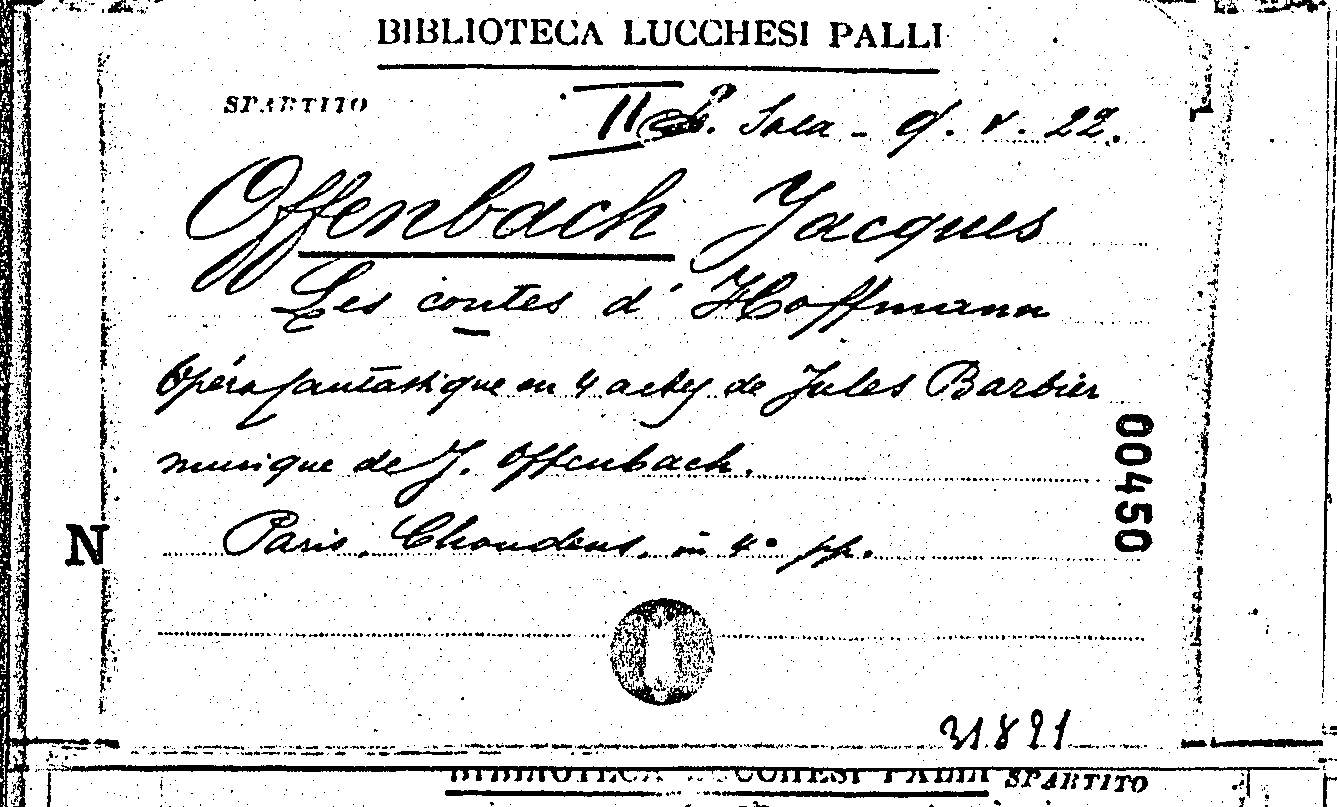 BIBLIOTECA LUCCHESI PALLI
SPARTITO
II Sala - 9. V. 22.
Offenbach Jacques
Les contes d'Hoffmann
Opéra fantastique en 4 actes de Jules Barbier
musique de J. Offenbach.
Paris, Choudens, in 4° pp.
00450
N
31891
BIBLIOTECA LUCCHESI PALLI SPARTITO